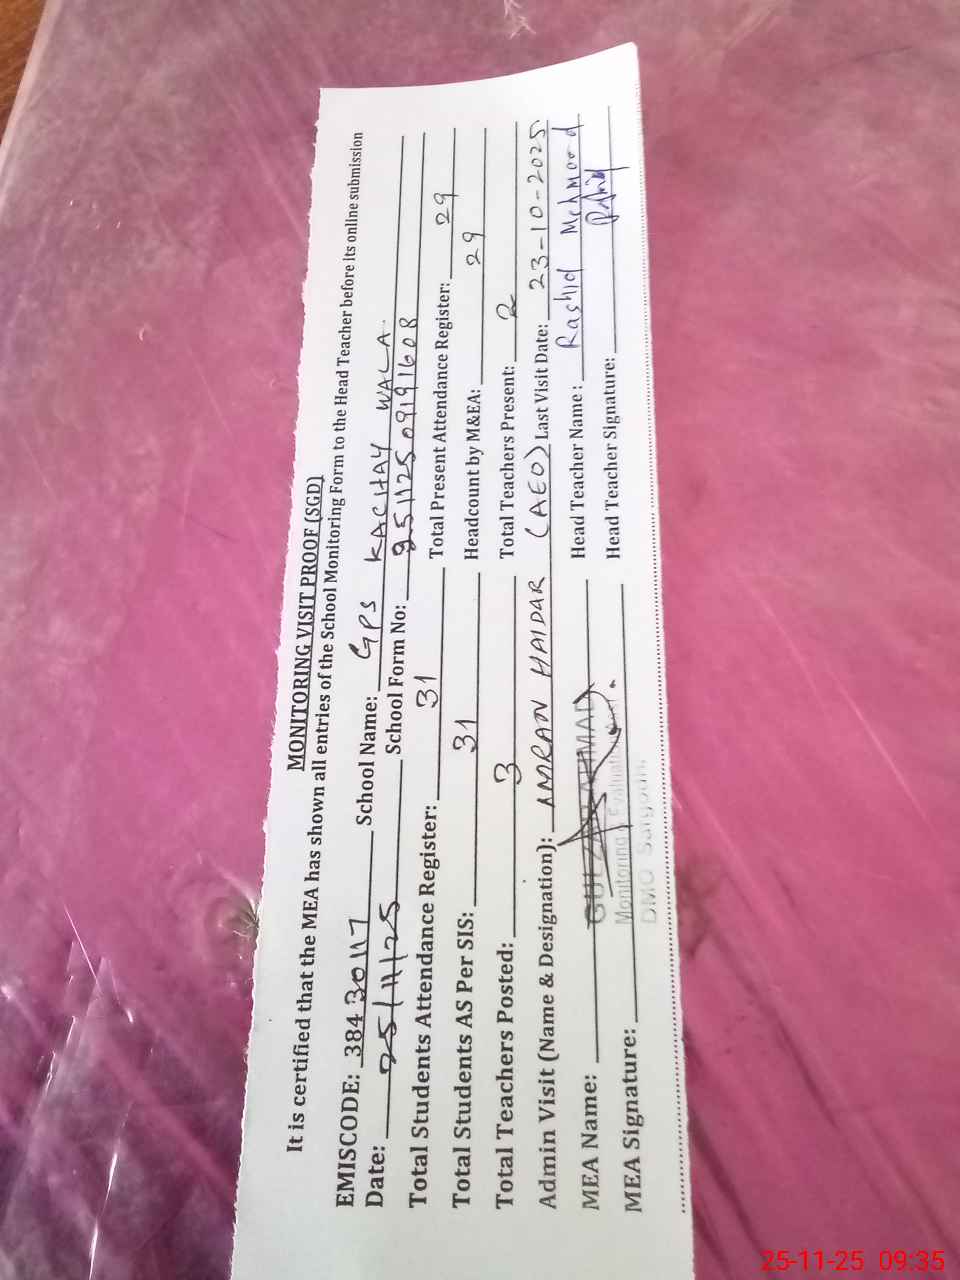 MONITORING VISIT PROOF (SGD)
It is certified that the MEA has shown all entries of the School Monitoring Form to the Head Teacher before its online submission
EMISCODE: 384 30117 School Name: GPS KACHAY WALA
Date: 25/11/25 School Form No: 25112509191608
Total Students Attendance Register: 31 Total Present Attendance Register: 29
Total Students AS Per SIS: 31 Headcount by M&EA: 29
Total Teachers Posted: 3 Total Teachers Present: 2
Admin Visit (Name & Designation): AMRAN HAIDAR (AEO) Last Visit Date: 23-10-2025
MEA Name: GULZAR AHMAD Head Teacher Name: Rashid Mehmood
Monitoring & Evaluation
MEA Signature: Head Teacher Signature:
DMO Sargodha
25-11-25 09:35